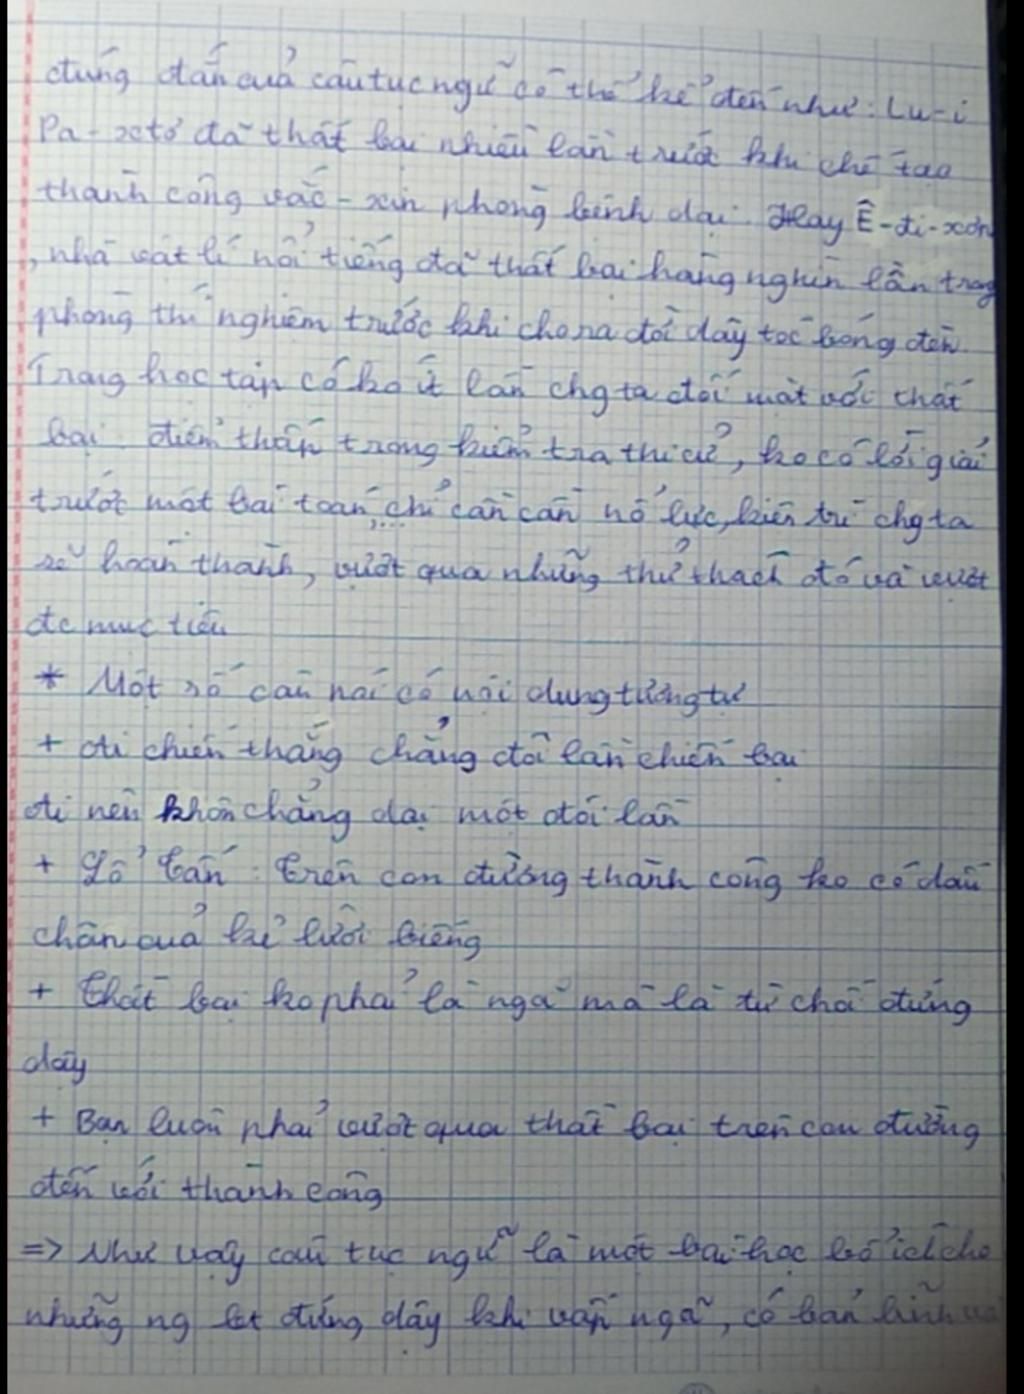 đúng đắn của câu tục ngữ có thể kể đến như: Lu-i
Pa-xtơ đã thất bại nhiều lần trước khi chế tạo
thành công vắc-xin phòng bệnh dại. Hay Ê-đi-xơn
, nhà vật lí nổi tiếng đã thất bại hàng nghìn lần trong
phòng thí nghiệm trước khi cho ra đời dây tóc bóng đèn.
Trong học tập có ko ít lần chg ta đối mặt với thất
bại điểm thấp trong kiểm tra thi cử, ko có lời giải
trước một bài toán, chỉ cần cần nỗ lực, kiên trì chg ta
sẽ hoàn thành, vượt qua những thử thách đó và vượt
đc mục tiêu
* Một số câu nói có nội dung tương tự
+ Ai chiến thắng chẳng đôi lần chiến bại
Ai nên khôn chẳng dại một đôi lần
+ Lỗ Tấn: Trên con đường thành công ko có dấu
chân của kẻ lười biếng
+ Thất bại ko phải là ngã mà là từ chối đứng
dậy
+ Bạn luôn phải vượt qua thất bại trên con đường
đến với thành công
=> Như vậy câu tục ngữ là một bài học bổ ích cho
những ng bt đứng dậy khi vấp ngã, có bản lĩnh và